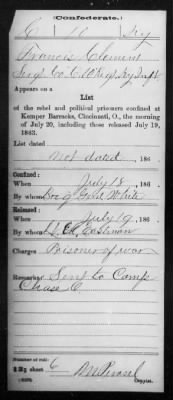 (Confederate.)
C 10 Ky
Francis Clement
Serg't Co. C, 10 Reg't Ky Inft
Appears on a
List
of the rebel and political prisoners confined at
Kemper Barracks, Cincinnati, O., the morning
of July 20, including those released July 19,
1863.
List dated
Not dated, 186 .
Confined:
When July 18, 186 .
By whom Brig Genl White
Released:
When July 19, 186 .
By whom Eastman
Charges Prisoner of war
Remarks: Sent to Camp
Chase O.
Number of roll:
6
Copyist.